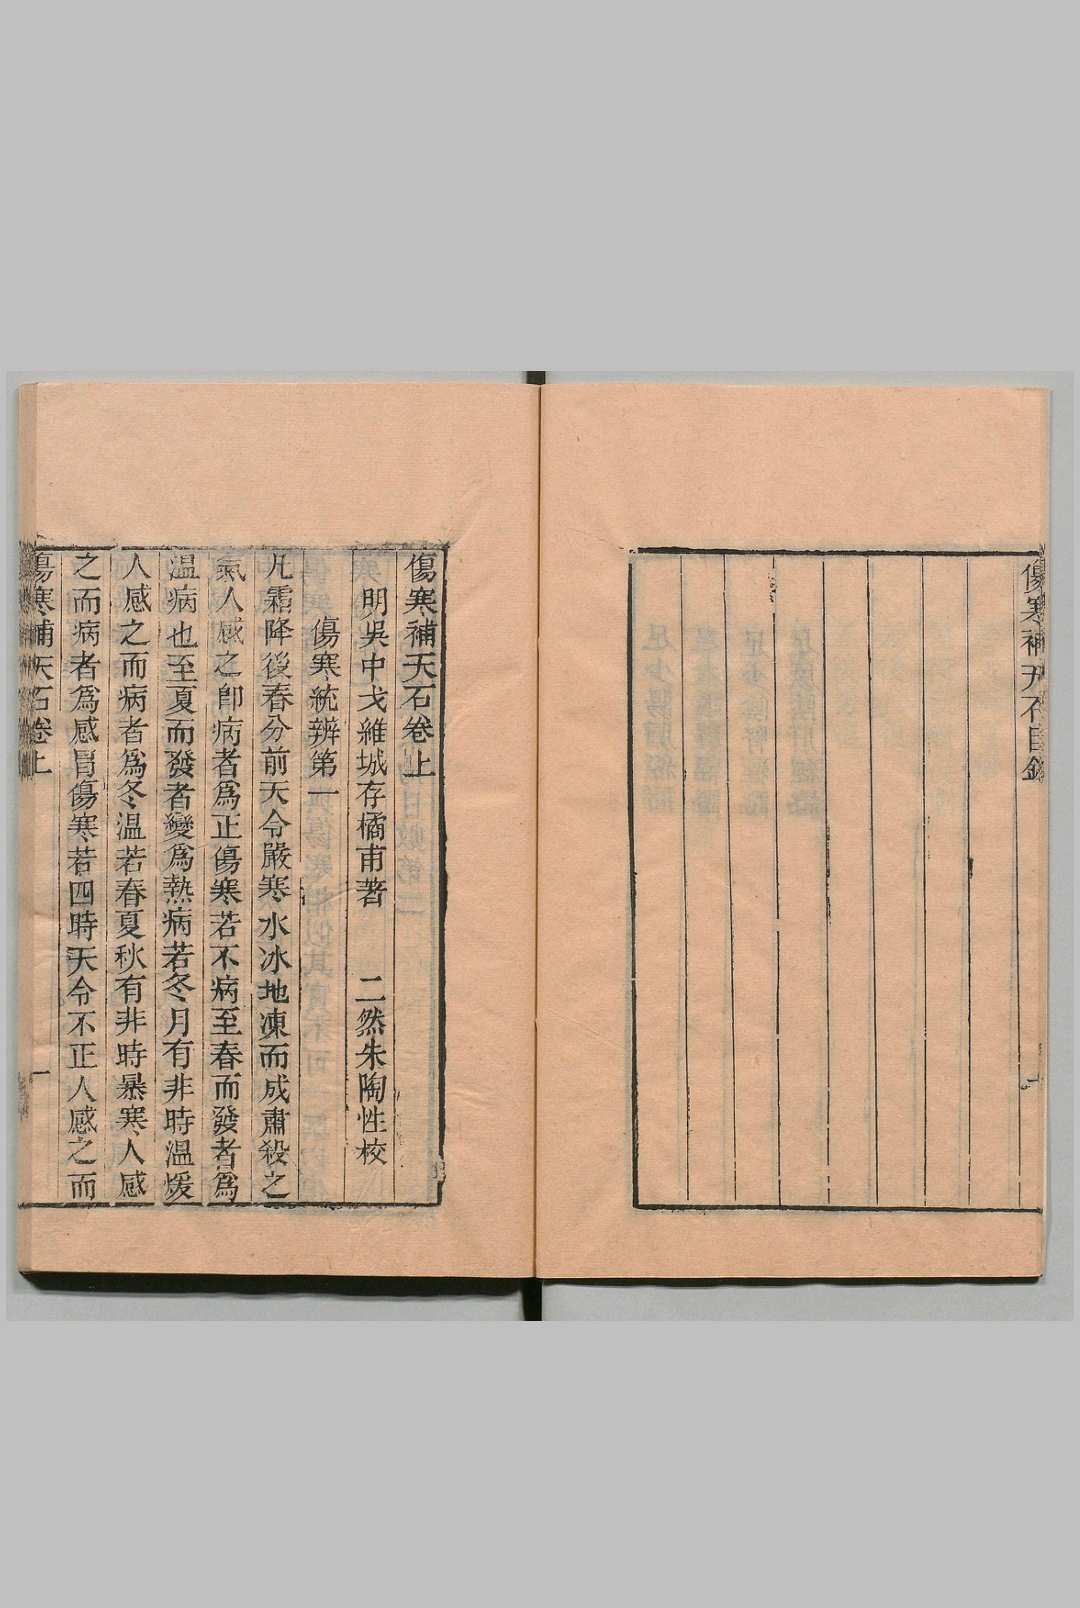 傷寒補天石目錄
一
傷寒補天石卷上
明吳中戈維城存橘甫著　二然朱陶性校
傷寒統辨第一
凡霜降後春分前天令嚴寒水冰地凍而成肅殺之
氣人感之卽病者爲正傷寒若不病至春而發者爲
温病也至夏而發者變爲熱病若冬月有非時温煖
人感之而病者爲冬温若春夏秋有非時暴寒人感
之而病者爲感冒傷寒若四時天令不正人感之而
傷寒補天石卷上
一